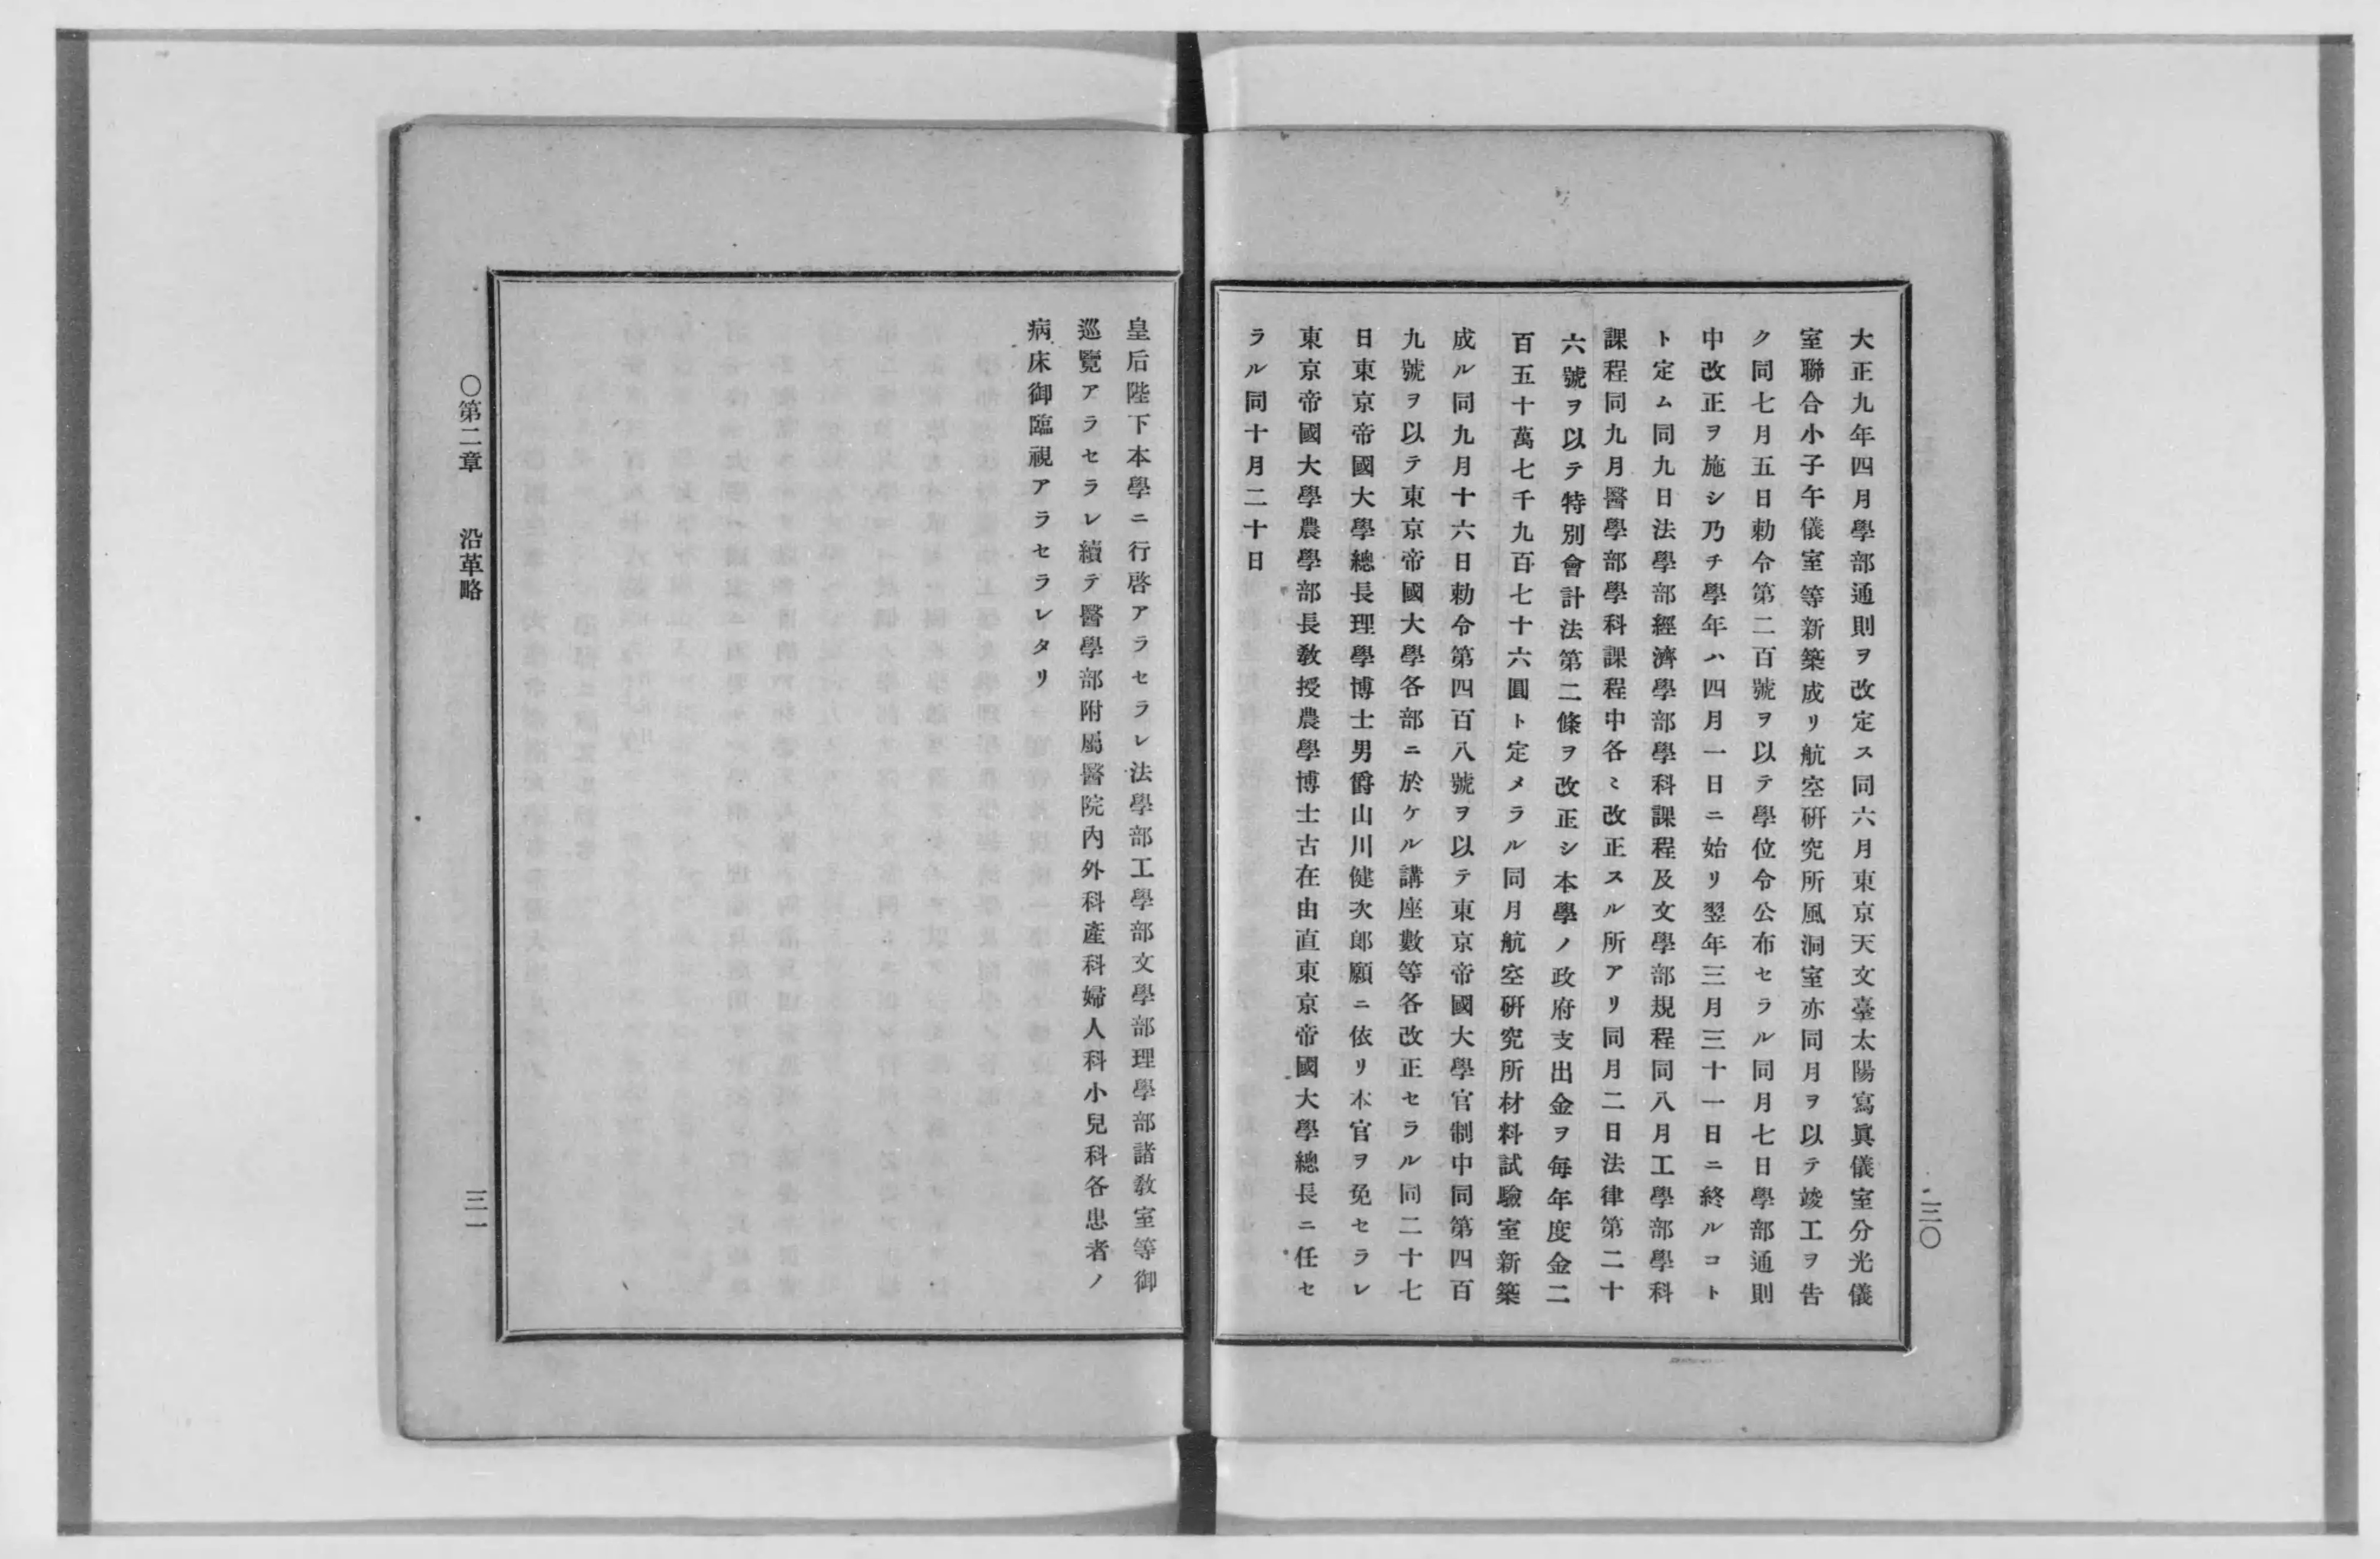 大正九年四月學部通則ヲ改定ス同六月東京天文臺太陽寫眞儀室分光儀
室聯合小子午儀室等新築成リ航空硏究所風洞室亦同月ヲ以テ竣工ヲ告
ク同七月五日勅令第二百號ヲ以テ學位令公布セラル同月七日學部通則
中改正ヲ施シ乃チ學年ハ四月一日ニ始リ翌年三月三十一日ニ終ルコト
ト定ム同九日法學部經濟學部學科課程及文學部規程同八月工學部學科
課程同九月醫學部學科課程中各〻改正スル所アリ同月二日法律第二十
六號ヲ以テ特別會計法第二條ヲ改正シ本學ノ政府支出金ヲ每年度金二
百五十萬七千九百七十六圓ト定メラル同月航空硏究所材料試驗室新築
成ル同九月十六日勅令第四百八號ヲ以テ東京帝國大學官制中同第四百
九號ヲ以テ東京帝國大學各部ニ於ケル講座數等各改正セラル同二十七
日東京帝國大學總長理學博士男爵山川健次郎願ニ依リ本官ヲ免セラレ
東京帝國大學農學部長敎授農學博士古在由直東京帝國大學總長ニ任セ
ラル同十月二十日
三〇
皇后陛下本學ニ行啓アラセラレ法學部工學部文學部理學部諸敎室等御
巡覽アラセラレ續テ醫學部附屬醫院內外科產科婦人科小兒科各患者ノ
病床御臨視アラセラレタリ
〇第二章 沿革略
三一